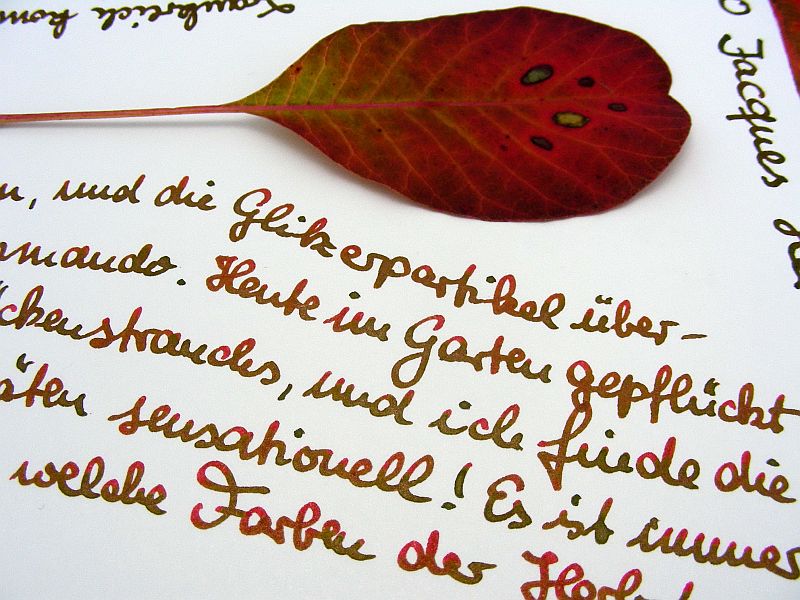 Jacques
n, und die Glitzerpartikel über-
mmando. Heute im Garten gepflückt
ckenstrauchs, und ich finde die
äten sensationell! Es ist immer
welche Farben der Herbst